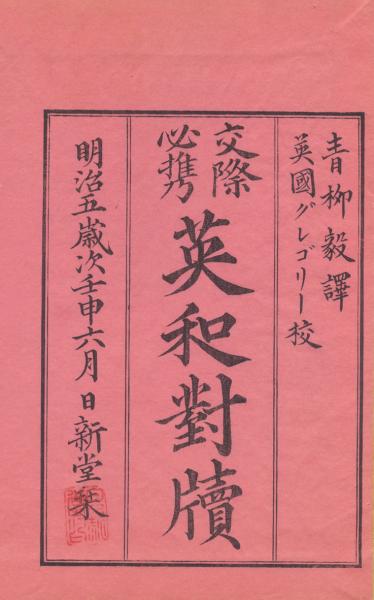 青柳毅譯
英國グレゴリー校
交際
必携
英和對牘
明治五歳次壬申六月 日新堂栞